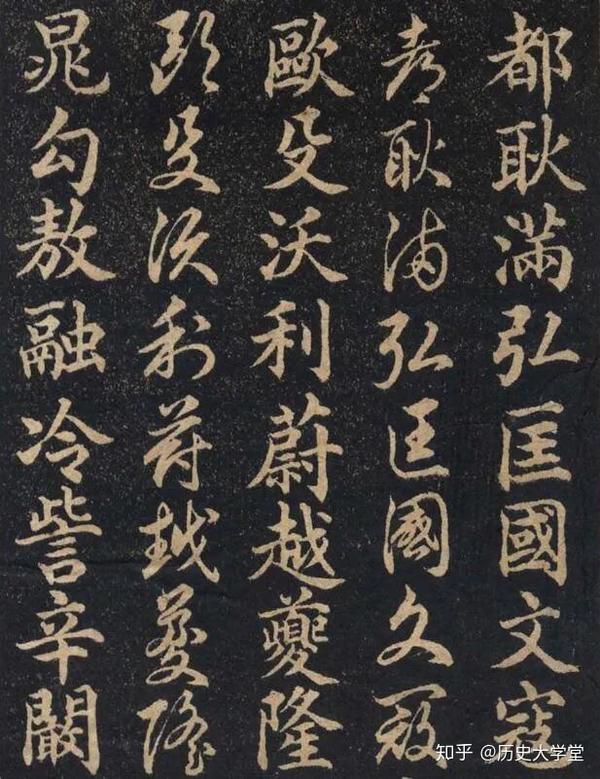 都耿滿弘匡國文寇
都耿滿弘匡國文寇
歐殳沃利蔚越夔隆
歐殳沃利蔚越夔隆
晁勾敖融冷訾辛闞
知乎 @历史大学堂